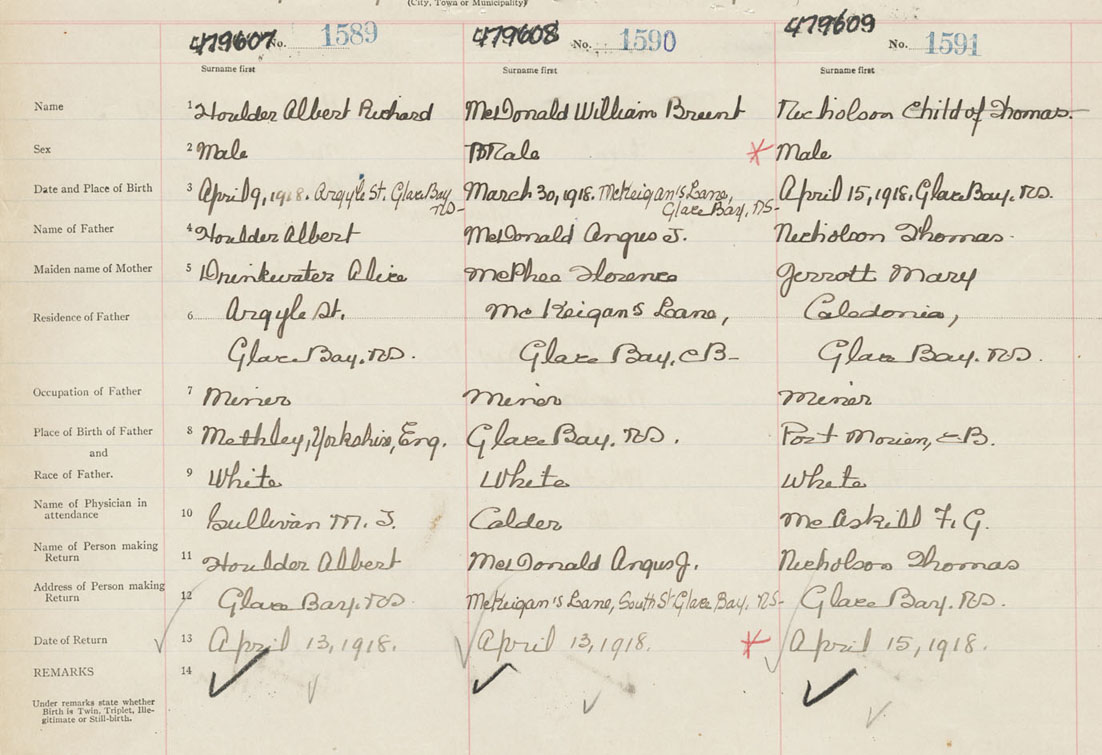 (City, Town or Municipality)
479607 No. 1589 479608 No. 1590 479609 No. 1591
Surname first Surname first Surname first
Name 1 Houlder Albert Richard McDonald William Brent Nicholson Child of Thomas.
Sex 2 Male Male Male
Date and Place of Birth 3 April 9, 1918. Argyle St. Glace Bay NS- March 30, 1918. McKeigan's Lane, Glace Bay, NS- April 15, 1918. Glace Bay. NS.
Name of Father 4 Houlder Albert McDonald Angus J. Nicholson Thomas.
Maiden name of Mother 5 Drinkwater Alice McPhee Florence Jerrott Mary
Residence of Father 6 Argyle St. McKeigan's Lane, Caledonia,
Glace Bay. NS. Glace Bay, CB- Glace Bay. NS.
Occupation of Father 7 Miner Miner Miner
Place of Birth of Father 8 Methley, Yorkshire, Eng. Glace Bay. NS. Port Morien, CB.
and
Race of Father. 9 White White White
Name of Physician in attendance 10 Sullivan M. J. Calder McAskill F. G.
Name of Person making Return 11 Houlder Albert McDonald Angus J. Nicholson Thomas
Address of Person making Return 12 Glace Bay. NS. McKeigan's Lane, South St Glace Bay, NS- Glace Bay. NS.
Date of Return 13 April 13, 1918. April 13, 1918. April 15, 1918.
REMARKS 14
Under remarks state whether
Birth is Twin, Triplet, Ille-
gitimate or Still-birth.